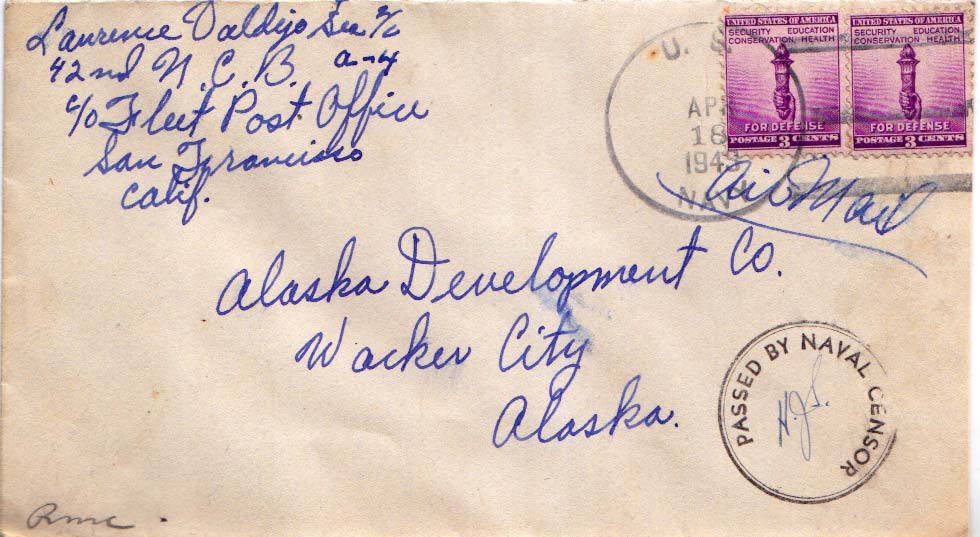 Laurence Valdijo Sea 2/c
42nd N.C.B. A-4
c/o Fleet Post Office
San Francisco
Calif.
UNITED STATES OF AMERICA
SECURITY EDUCATION
CONSERVATION HEALTH
FOR DEFENSE
POSTAGE 3 CENTS
UNITED STATES OF AMERICA
SECURITY EDUCATION
CONSERVATION HEALTH
FOR DEFENSE
POSTAGE 3 CENTS
U. S.
APR
18
1943
NAVY
Air Mail
Alaska Development Co.
Wacker City
Alaska.
PASSED BY NAVAL CENSOR
H.J.S.